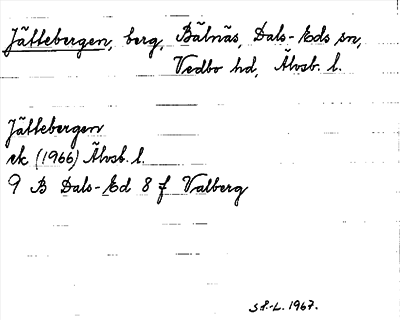 Jättebergen, berg, Bälnäs, Dals-Eds sn,
Vedbo hd, Älvsb. l.
Jättebergen
ek (1966) Älvsb. l.
9 B Dals-Ed 8 f Valberg
1967.